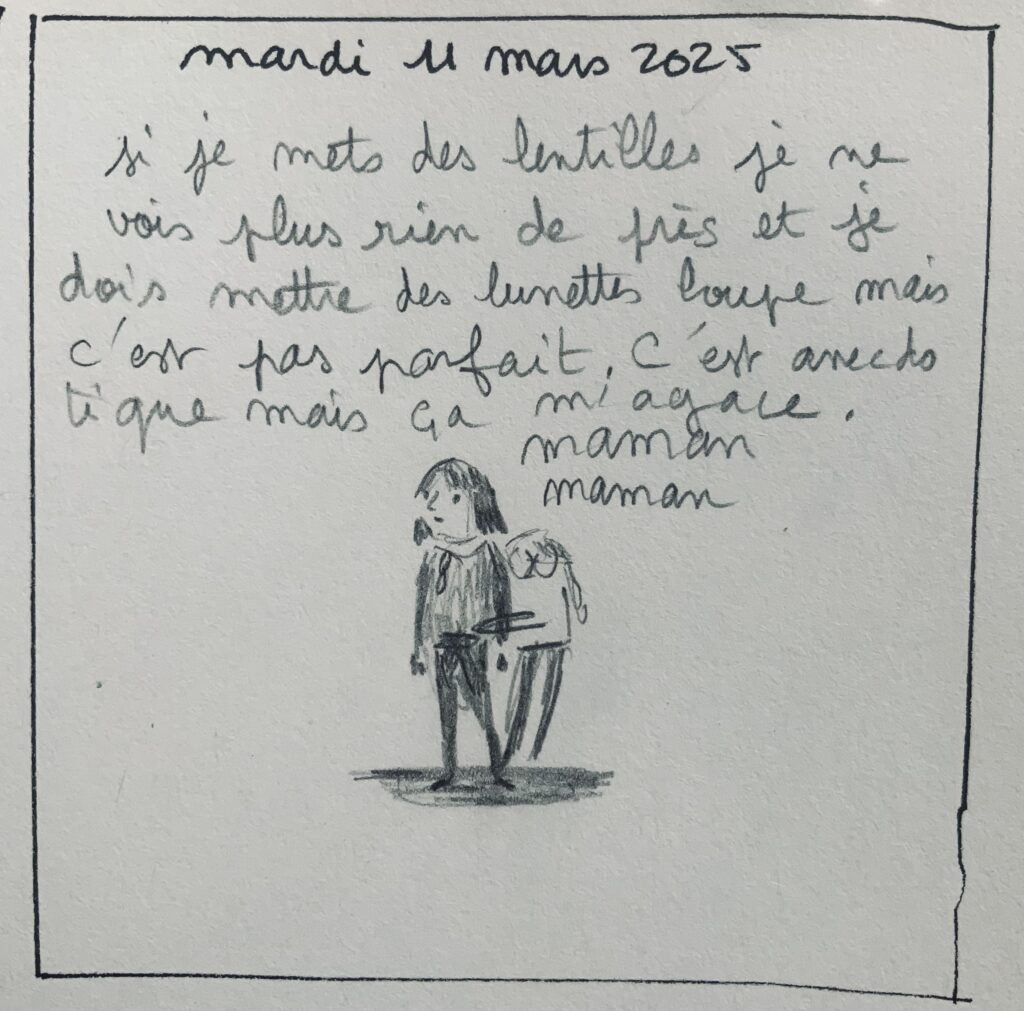 mardi 11 mars 2025
si je mets des lentilles je ne
vois plus rien de près et je
dois mettre des lunettes loupe mais
c'est pas parfait. C'est anecdo
tique mais ça m'agace.
maman
maman